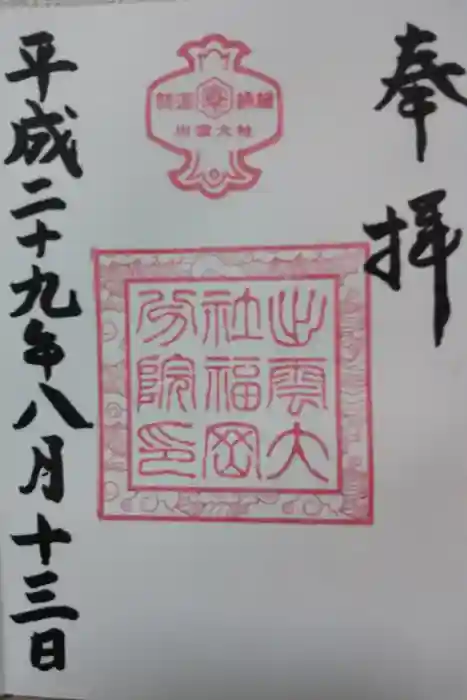 奉拝
出雲大社
出雲大
社福岡
分院印
平成二十九年八月十三日